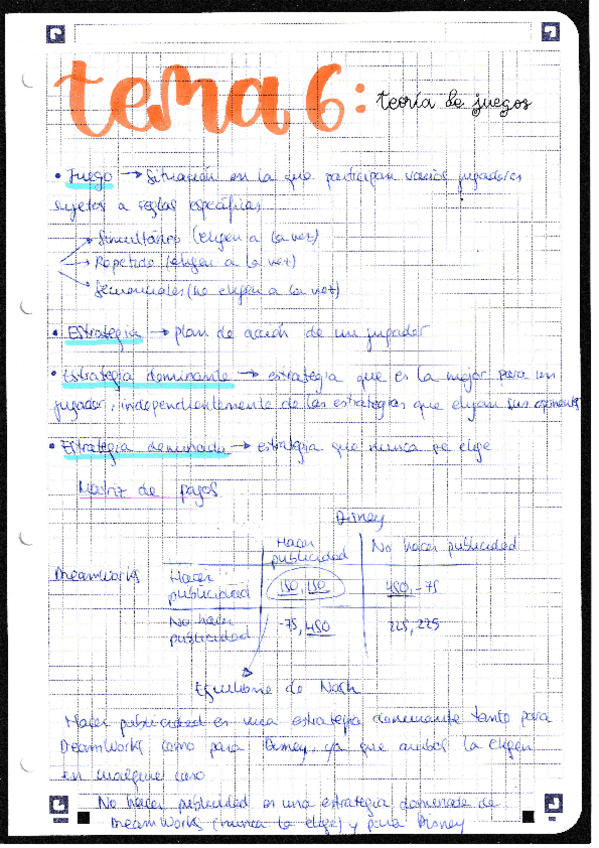 tema 6: teoría de juegos
• Juego → Situación en la que participan varios jugadores
sujetos a reglas específicas
Simultáneo (eligen a la vez)
Repetido (eligen a la vez)
Secuenciales (no eligen a la vez)
• Estrategia → plan de acción de un jugador
• Estrategia dominante → estrategia que es la mejor para un
jugador, independientemente de las estrategias que elijan sus oponentes
• Estrategia dominada → estrategia que nunca se elige
Matriz de pagos
Disney
Hacer publicidad No hacer publicidad
DreamWorks Hacer publicidad 150, 150 450, -75
No hacer publicidad -75, 450 225, 225
Equilibrio de Nash
Hacer publicidad es una estrategia dominante tanto para
DreamWorks como para Disney, ya que ambos la eligen
en cualquier caso
No hacer publicidad es una estrategia dominada de
DreamWorks (nunca la elige) y para Disney